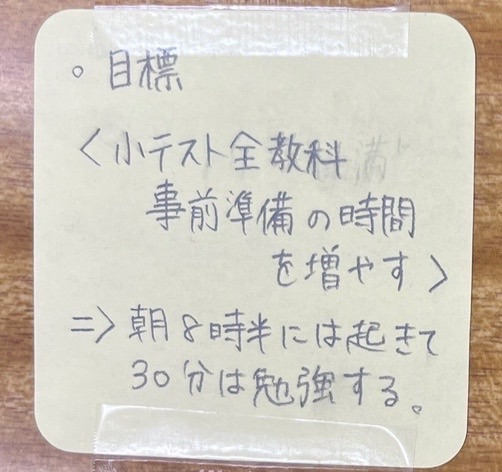 。目標
<小テスト全教科
事前準備の時間
を増やす>
=>朝8時半には起きて
30分は勉強する。